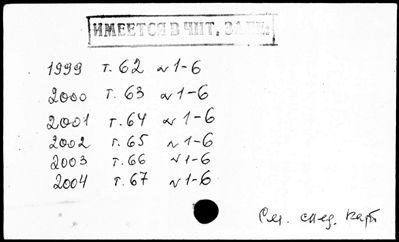 ИМЕЕТСЯ В ЧИТ. ЗАЛЕ.
1999 т. 62 № 1-6
2000 т. 63 № 1-6
2001 т. 64 № 1-6
2002 т. 65 № 1-6
2003 т. 66 № 1-6
2004 т. 67 № 1-6
См. след. карт